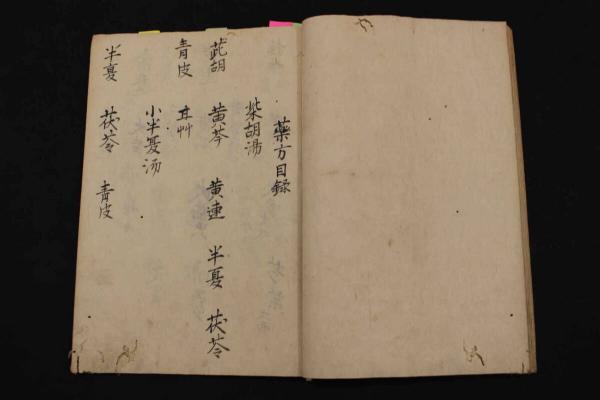 藥方目録
柴胡湯
茈胡 黄芩 黄連 半夏 茯苓
青皮 甘艸
小半夏汤
半夏 茯苓 青皮